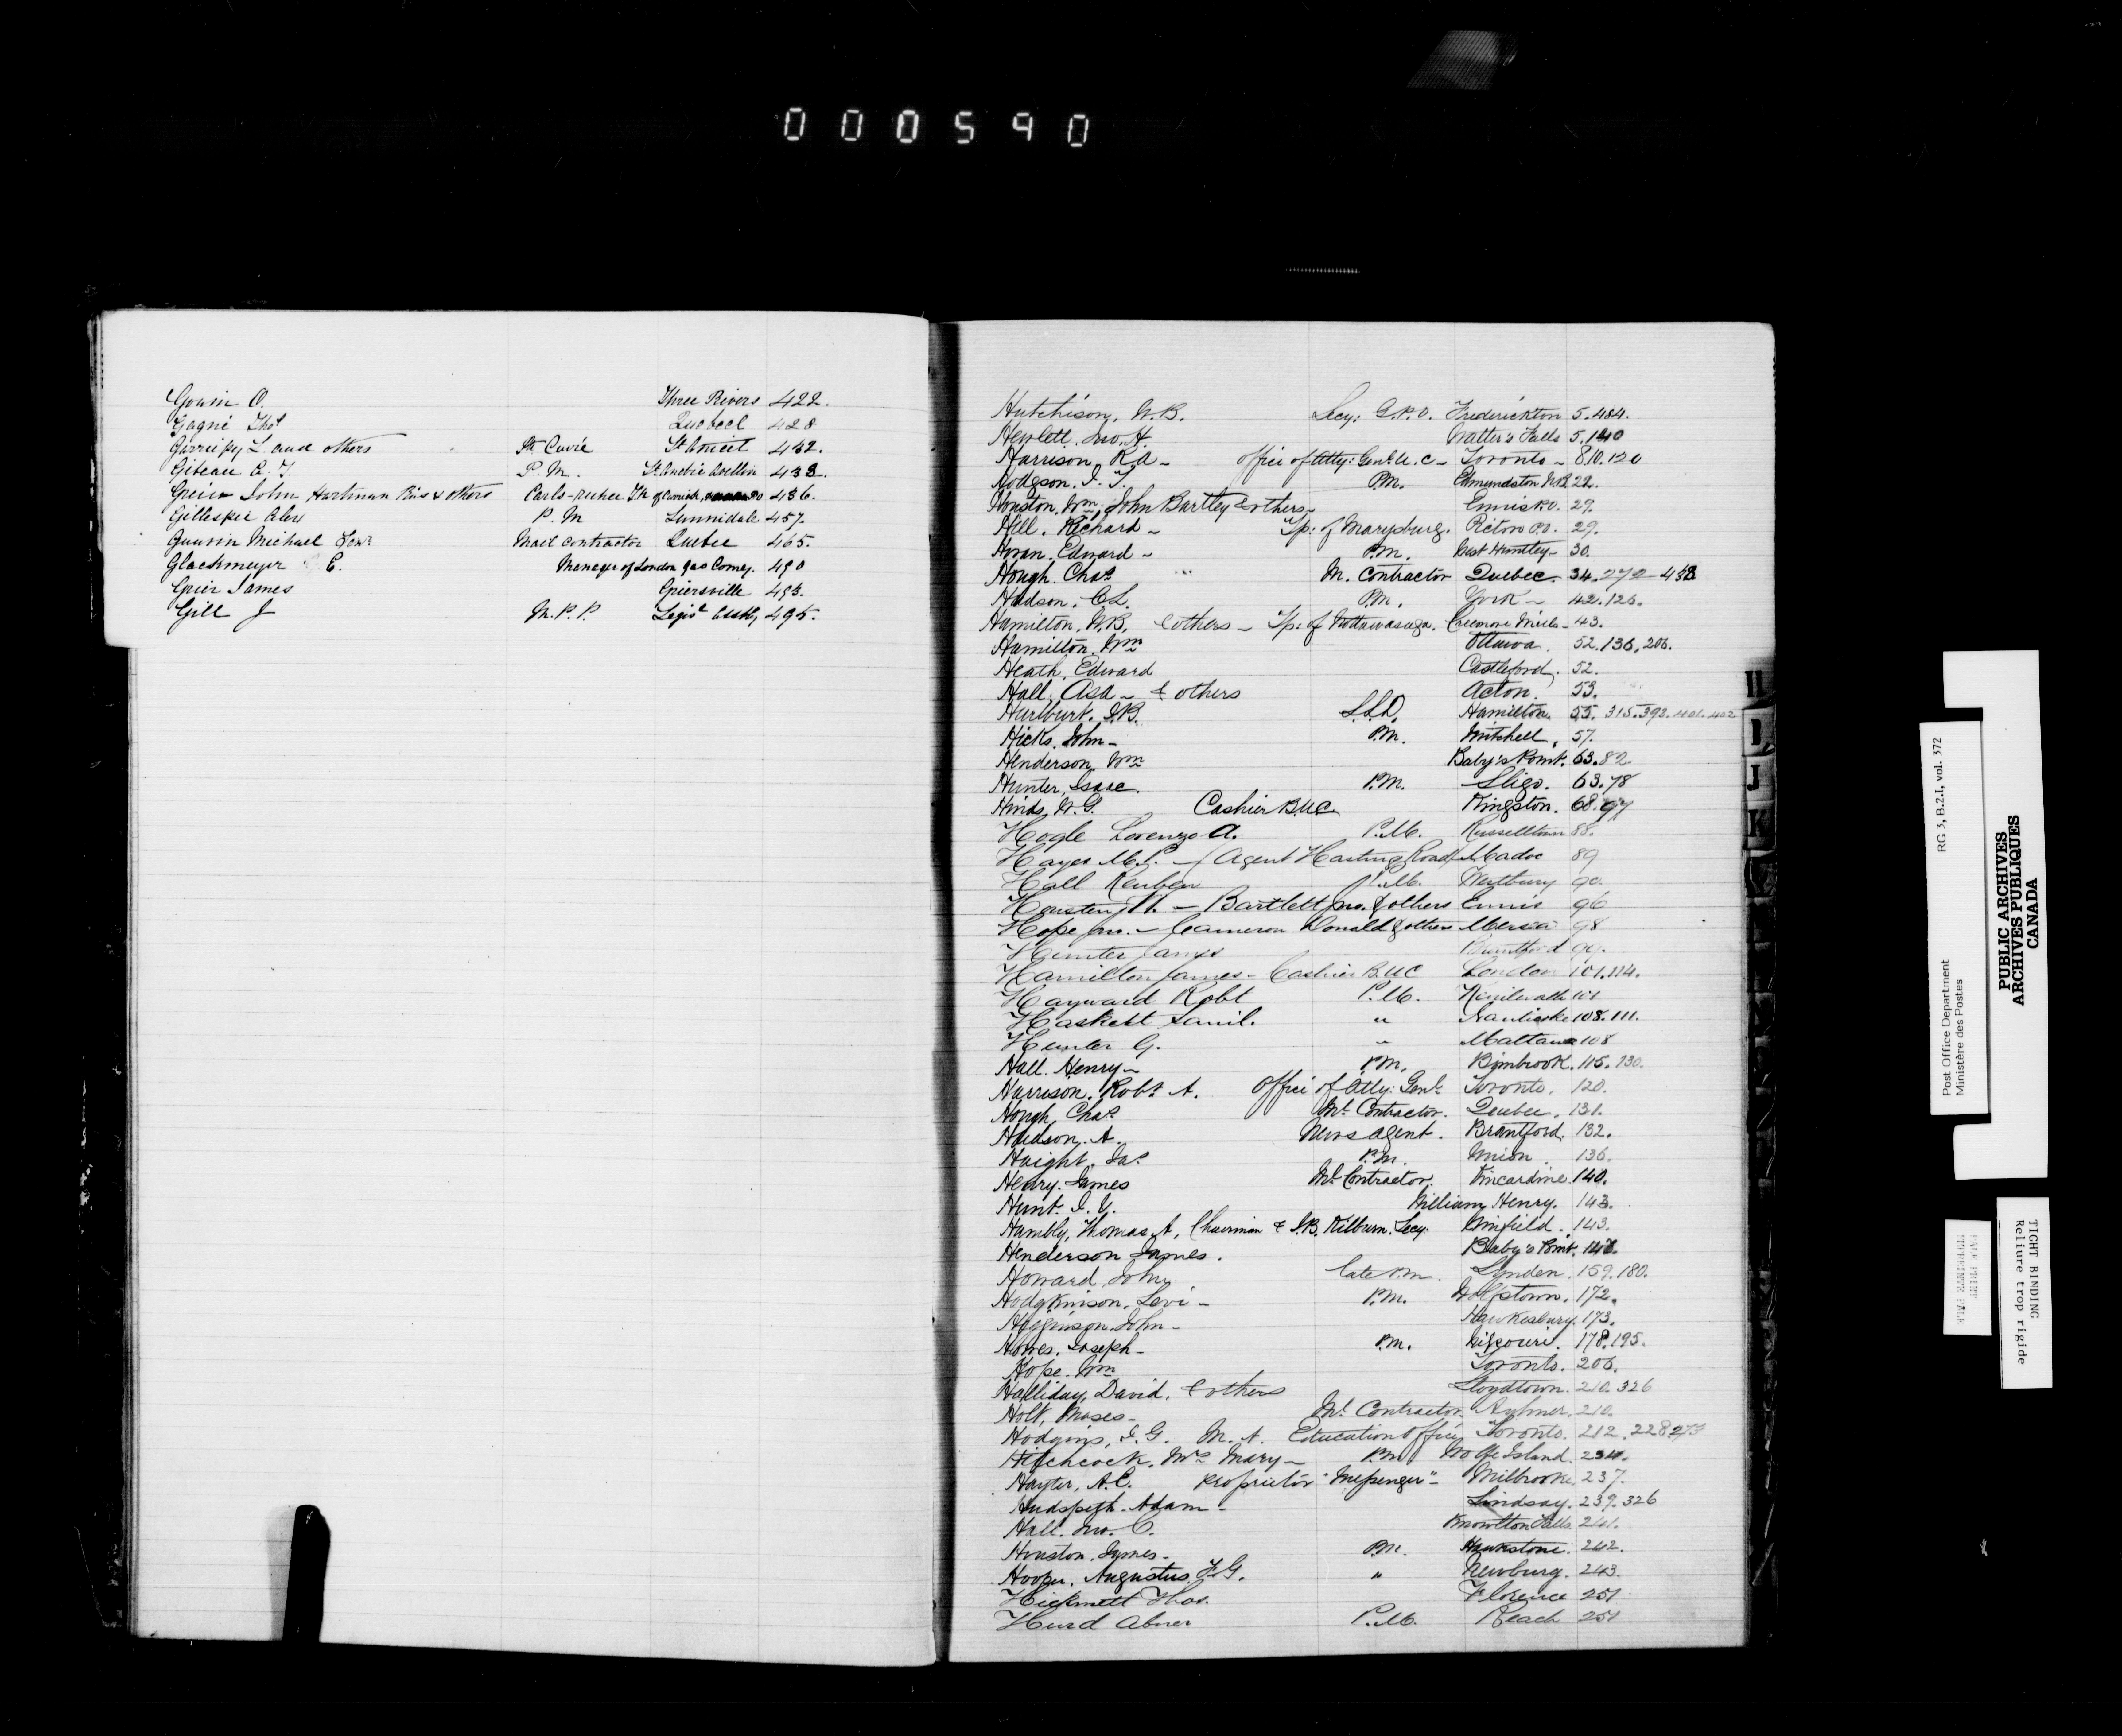 000590
Gouin O. Three Rivers 422.
Gagné Thos Quebec 428
L. and others St Anicet 432.
Giteau C. P.M. 433.
Greier John Hartman & others Carls-ruhe 436.
Gillespie Alex P.M Sunnidale 457.
Gauvin Michael Senr Mail Contractor Quebec 465.
Glackmeyer E. Manager of London Gas Comy. 490
Grier James Griersville 493.
Gill J M.P.P. Legise Assbly 495.
Hutchison, W.B. Secy: G.P.O. Frederickton 5.484.
Hewlett, Jno. H. Walter's Falls 5.140
Harrison, R.A - Office of Atty: Genl: U.C - Toronto - 8.10.120
Hodgson. J. T. P.M. Edmundston N.B. 22.
Houston, Wm, John Bartley & others - Ennis P.O. 29.
Hill. Richard - Tp: of Marysburg. Picton P.O. 29.
Horan, Edward - P.M. West Huntley - 30.
Hough. Chas M. Contractor Quebec. 34.272-458
Hudson, C.L. P.M. York - 42.126.
Hamilton, W.B. & others - Tp: of Nottawasaga. Creemore Mills - 43.
Hamilton, Wm Ottawa. 52.136,206.
Heath, Edward Castleford. 52.
Hall, Asa - & others Acton. 53.
Hurlburt, J.B. L.L.D. Hamilton. 55. 315.393.401.402
Hicks, John - P.M. Mitchell. 57.
Henderson, Wm Baby's Point. 63.82
Hunter, Isaac. P.M. Sligo. 63.78
Hinds, W.G. Cashier B.U.C Kingston. 68.97
Hogle Lorenzo A. P.M. Russelltown 88.
Hayes M.P. - (Agent Hastings Road) Madoc 89
Hall Reuben P.M. Westbury 90.
Houston W. - Bartlett Jno. & others Ennis 96
Hope Jno. - Cameron Donald & others Mersea 98
Hunter James Brantford 99.
Hamilton James - Cashier B.U.C London 101.114.
Hayward Robt P.M. Kenilworth 101
Haskett Saml. " Nanticoke 108.111.
Hunter G. " Mattawa 108
Hall. Henry - P.M. Binbrook. 115.130.
Harrison. Robt A. Office of Atty: Genl: Toronto. 120.
Hough, Chas Ml Contractor. Quebec. 131.
Hudson. A. News Agent. Brantford. 132.
Haight. Jas P.M. Union. 136.
Henry. James Ml Contractor. Kincardine. 140.
Hunt. J. V. William Henry. 143.
Hambly, Thomas A. Chairman & J.B. Kilburn. Secy. Winfield. 143.
Henderson James. Baby's Point. 148.
Howard, John late P.M. Lynden. 159.180.
Hodgkinson, Levi - P.M. Wolfstown. 172.
Higginson, John - Hawkesbury. 173.
Howes. Joseph - P.M. 178.195.
Hope. Wm Toronto. 206.
Halliday, David. & others Lloydtown. 210.326
Holt, Moses - Ml Contractor. Aylmer. 210.
Hodgins, J.G. M.A. Education Office Toronto. 212.228.273
Hitchcock, Mrs Mary - P.M. Wolfe Island. 234.
Hayter, A.C. Proprietor "Messenger" - Milbrooke. 237.
Hudspeth. Adam - Lindsay. 239.326
Hall. Jno. C. Knowlton Falls. 241.
Houston. James - P.M. Hawkstone. 242.
Hooper. Augustus F.G. " Newburg. 243.
Hickmott Thos. Florence 251
Hurd Abner P.M. Reach 251
H
I
J
K
RG 3, B.2.I, vol. 372
Post Office Department
Ministère des Postes
PUBLIC ARCHIVES
ARCHIVES PUBLIQUES
CANADA
TIGHT BINDING
Reliure trop rigide